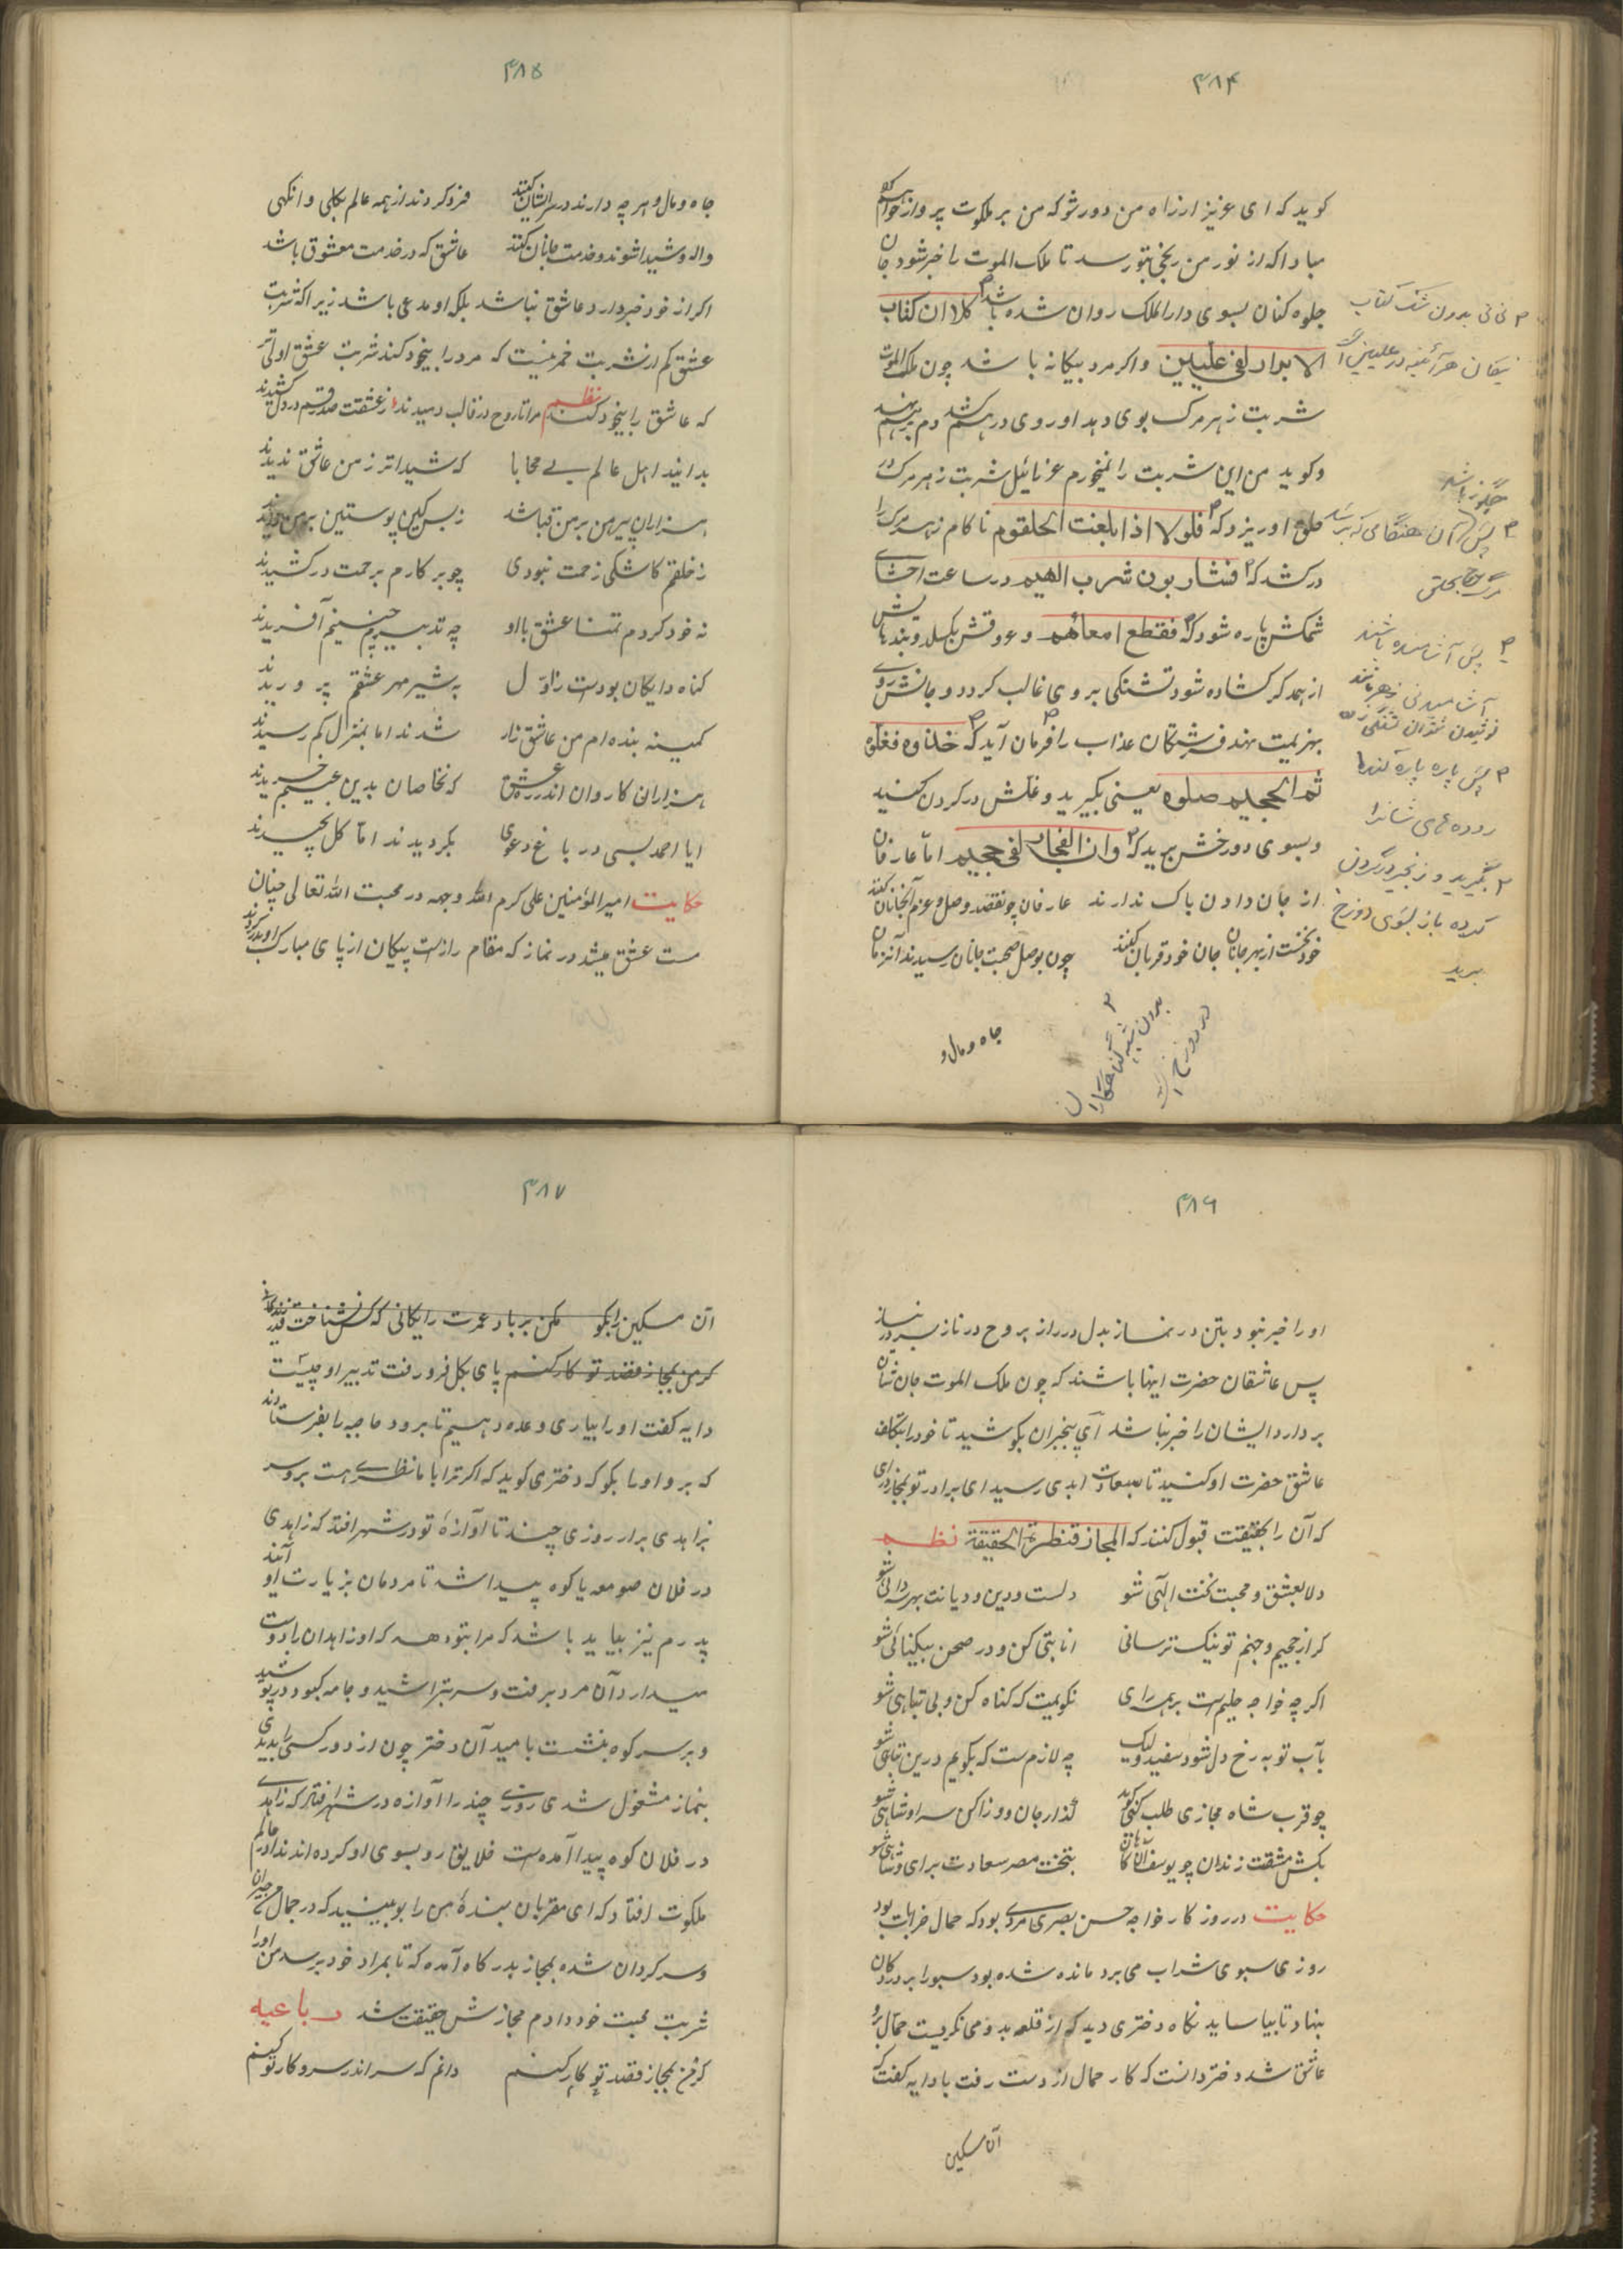 ۴۸۴
کوید که ای عزیز ار راه من دور شو که من بر ملکوت پرواز خواهم کرد
مبادا که از نور من رنجی بتو رسد تا ملک الموت را خبر شود جان
جلوه کنان بسوی دار الملک روان شده باشد کلا ان کتاب
الابرار لفی علیین واکر مرد بیکانه باشد چون ملک الموت
شربت زهر مرک بوی دهد او روی درهم کشد دم برهم نهد
وکوید من این شربت را نمیخورم عزرائیل شربت زهر مرک در
حلق او ریزد که فلولا اذا بلغت الحلقوم ناکام زهر مرک را
در کشد که فشاربون شرب الهیم در ساعت احشای
شمکش پاره شود که فقطع امعائهم وعروقش بکسلد وبندهایش
از همدکر کشاده شود تشنکی بر وی غالب کردد وجانش روی
بهزیمت نهد فرشتکان عذاب را فرمان آید که خذوه فغلوه
ثم الجحیم صلوه یعنی بگیرید وغلش در کردن کنید
وبسوی دوزخش برید که وان الفجار لفی جحیم اما عارفان
از جان دادن باک ندارند عارفان چو نقصد وصل وعزم آنجانان کنند
خود نخست از بهر جانان جان خود قربان کنند چون بوصل صحبت جانان رسیدند آنزمان
جاه ومال و
۲ نی نی بدون شک کتاب
نیکان هرآئینه در علیین است
چکونه باشد
۲ پس آن هنگامی که برسد
مرگ بحلق
۲ پس آشامنده باشند
آشامیدنی
نوشیدن شتران تشنه
۲ پس پاره پاره کند
روده های شانرا
۲ بگیرید و زنجیر در گردن
کرده باز بسوی دوزخ
برید
۲ بدون شبه گناهکاران
در دوزخ است
۴۸۵
جاه ومال وهر چه دارند در سر ایشان کنند فرد کردند از همه عالم بکلی وانکهی
واله وشیدا شوند وخدمت جانان کنند عاشق که در خدمت معشوق باشد
اکر از خود خبر دارد عاشق نباشد بلکه او مدعی باشد زیرا که شربت
عشق کم از شربت خمر نیست که مرد را بیخود کند شربت عشق اولی تر
که عاشق را بیخود کند نظم مرا تا روح در قالب دمیدند ز عشقت صد رقم در دل کشیدند
بدانید اهل عالم بی محابا که شیداتر ز من عاشق ندیدند
هزاران پیرهن بر من قبا شد ز بس کین پوستین بر من دریدند
ز خلقم کاشکی زحمت نبودی چو بر کارم برحمت در کشیدند
نه خود کردم تمنا عشق با او چه تدبیرم چنینم آفریدند
کناه دایکان بودست ز اول به شیر مهر عشقم پروریدند
کمینه بنده ام من عاشق زار شدند اما بمنزل کم رسیدند
هزاران کاروان اندر ره عشق که نخاصان بدین عیبم خریدند
ایا احمد بسی در باغ دعوی بکردیدند اما کل نچیدند
حکایت امیر المؤمنین علی کرم الله وجهه در محبت الله تعالی چنان
مست عشق میشد در نماز که مقام رازست پیکان از پای مبارک او بدر کردند
۴۸۶
او را خبر نبود بتن در نماز بدل در راز بروح در ناز بسر در نیاز
پس عاشقان حضرت اینها باشند که چون ملک الموت جان شان
بردارد ایشان را خبر نباشد آی بیخبران بکوشید تا خود را بتکلف
عاشق حضرت او کنید تا بسعادت ابدی رسید ای برادر تو بمجاز درای
که آن را بحقیقت قبول کنند که المجاز قنطرة الحقیقة نظم
دلا بعشق ومحبت تخت الهی شو دلست ودین ودیانت بهر دانی شو
کر از جحیم وجهنم تو نیک ترسانی انابتی کن ودر صحن بیکناهی شو
اکرچه خواجه حلیم ست بر همه رای نکویمت که کناه کن وبی تباهی شو
بآب توبه رخ دل شود سفید ولیک چه لازم ست که بکویم درین تباهی شو
چو قرب شاه مجازی طلب کنی کوید گذار جان ودوزاکن سرا وشاهی شو
بکش مشقت زندان چو یوسف کنعان بتخت مصر سعادت برای وشاهی شو
حکایت در روزکار خواجه حسن بصری مردی بود که حمال خرابات بود
روزی سبوی شراب می برد مانده شده بود سبو را بر در دکان
بنهاد تا بیاساید نکاه دختری دید که از قلعه بدو می نکریست حمال برو
عاشق شد دختر دانست که کار حمال از دست رفت با دایه کفت که
آن مسکین
۴۸۷
آن مسکین را بکو مکن بر باد عمرت رایکانی که کس نشناخت قدر زندکانی
کر من بمجاز قصد تو کار کنم پای بکل فرو رفت تدبیر او چیست
دایه کفت او را بیاری وعده دهیم تا برود حاجبه را بفرستادند
که برو او را بکو که دختری کوید که اکر ترا با ما نظری هست برو سر
بزاهدی برار روزی چند تا آوازهٔ تو در شهر افتد که زاهدی
در فلان صومعه یا کوه پیدا شد تا مردمان بزیارت او آیند
پدرم نیز بیاید باشد که مرا بتو دهد که او زاهدان را دوست
میدارد آن مرد برفت وسر بتراشید وجامه کبود در پوشید
وبر سر کوه بنشست بامید آن دختر چون از دور کسی را بدیدی
بنماز مشغول شدی روزی چند را آوازه در شهر افتاد که زاهدی
در فلان کوه پیدا آمده ست خلایق رو بسوی او کرده اند ندا در عالم
ملکوت افتاد که ای مقربان بندهٔ من را بو ببینید که در جمال من حیران
وسرکردان شده بمجاز بدرکاه آمده که تا بمراد خود برسد من او را
شربت محبت خود دادم مجازش حقیقت شد رباعیه
کر من بمجاز قصد تو کار کنم دانم که سر اندر سر وکار تو کنم